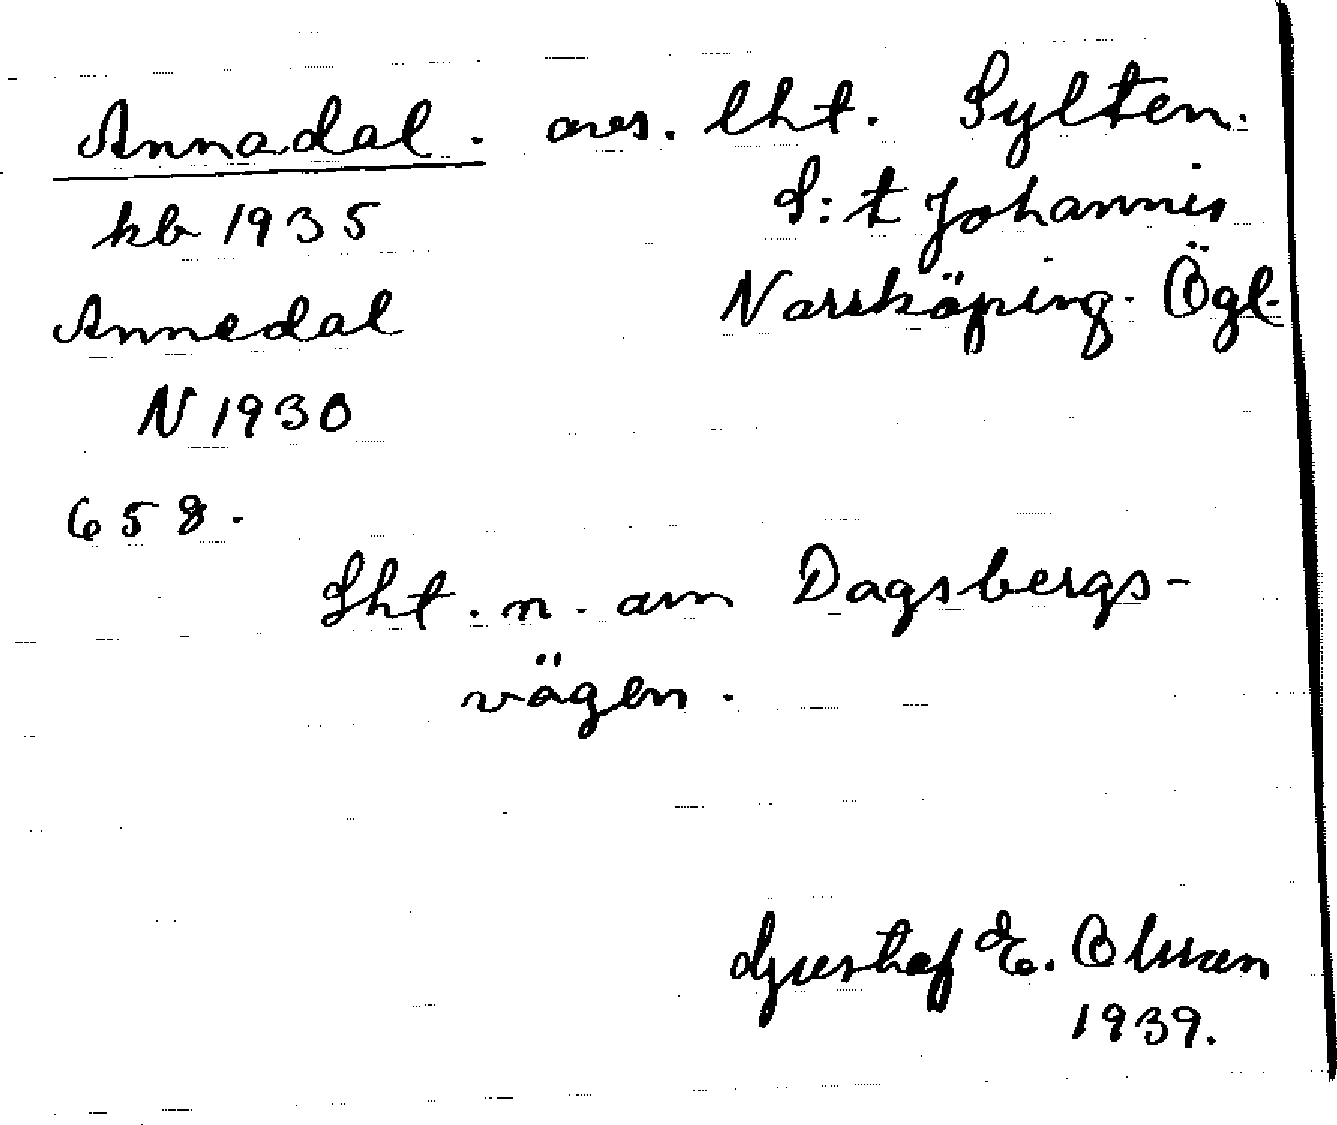 Annadal. avs. lht. Sylten.
kb 1935 S:t Johannis
Annedal Norrköping. Ögl.
N 1930
658.
Lht. n. om Dagsbergs-
vägen.
Gustaf E. Olsson
1939.